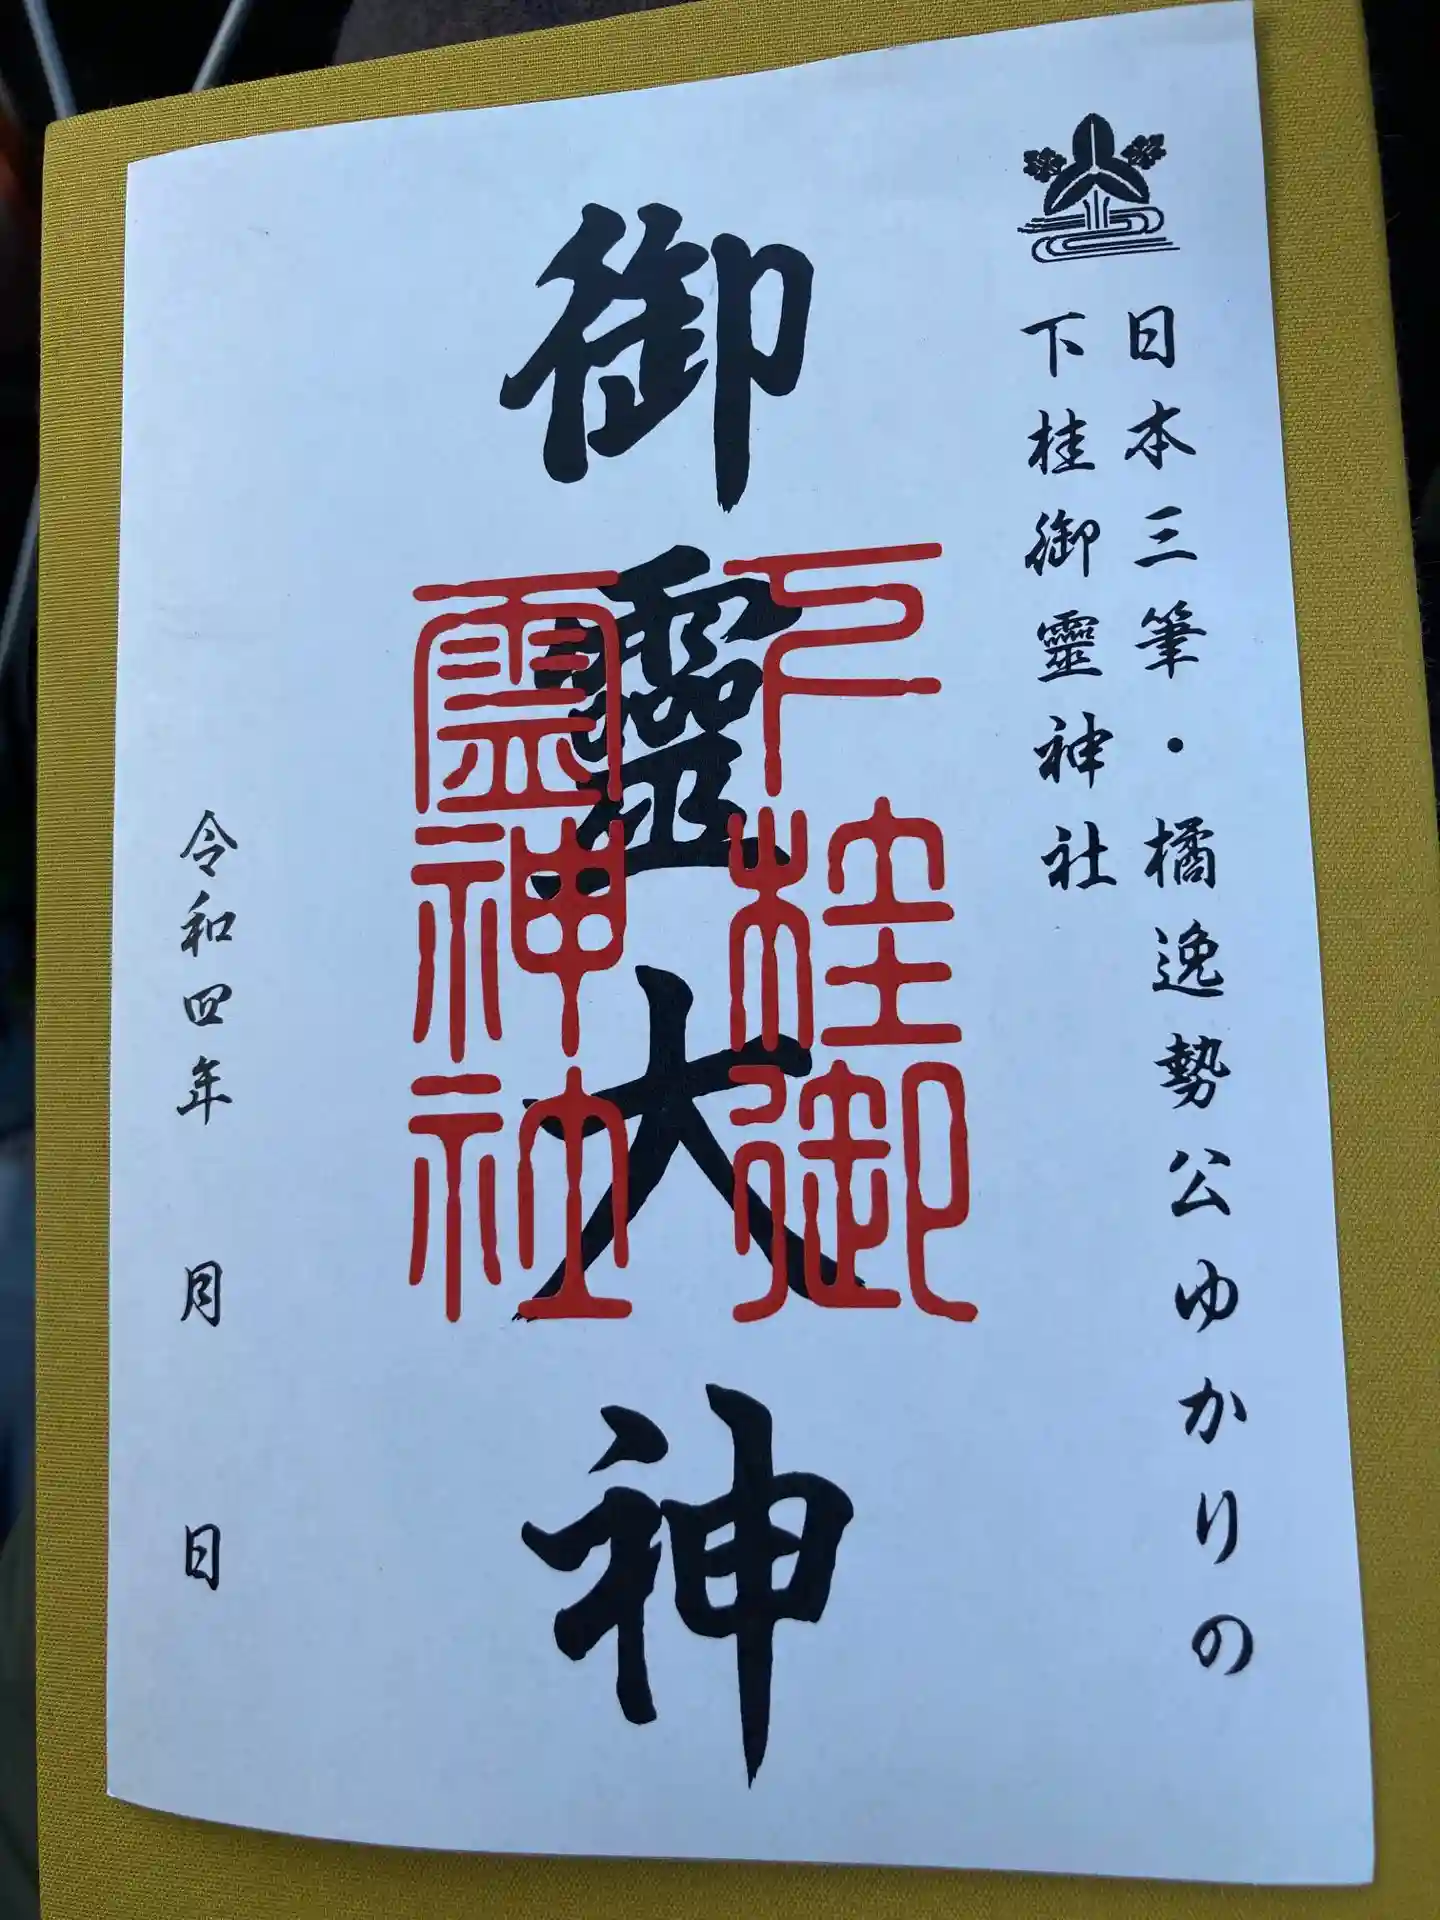 日本三筆・橘逸勢公ゆかりの
下桂御靈神社
御靈大神
下桂御
霊神社
令和四年 月 日